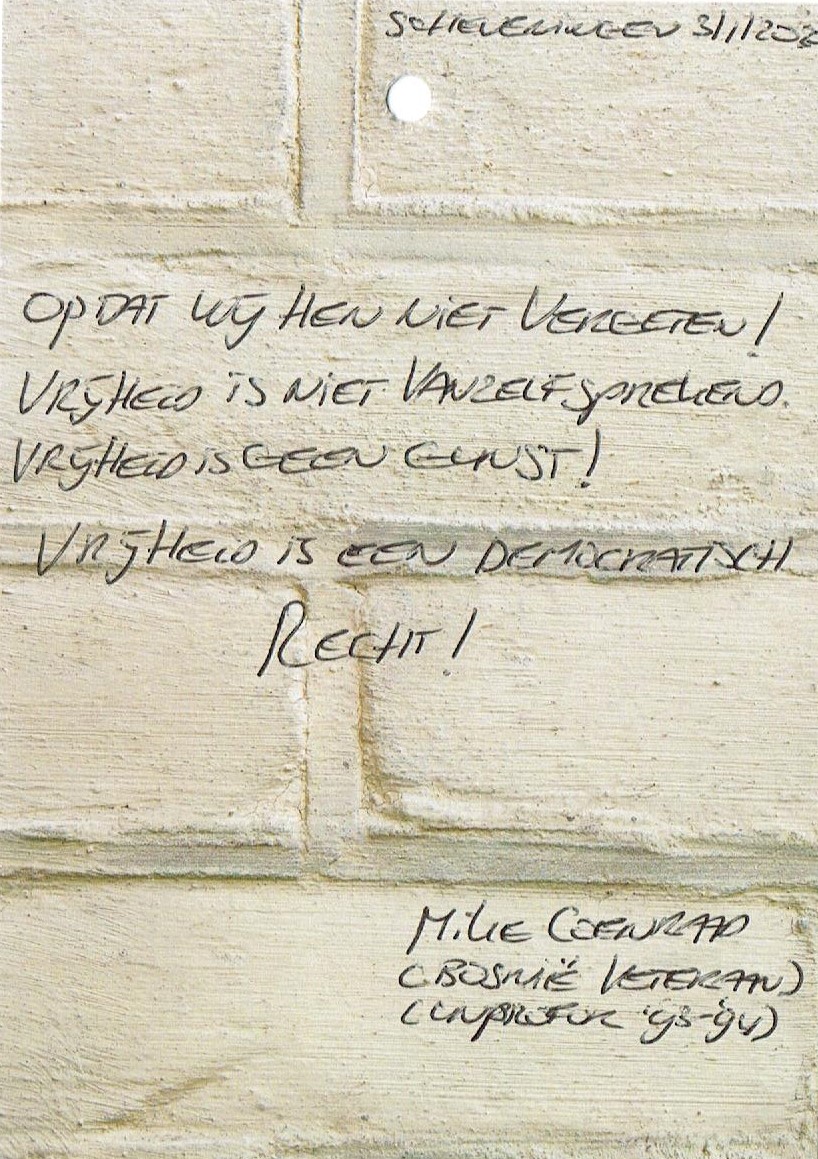 SCHEVENINGEN 3/1/202
OPDAT WIJ HEN NIET VERGETEN!
VRIJHEID IS NIET VANZELFSPREKEND.
VRIJHEID IS GEEN GUNST!
VRIJHEID IS EEN DEMOCRATISCH
RECHT!
MIKE COENRAAD
(BOSNIË VETERAAN)
(UNPROFOR '93-'94)